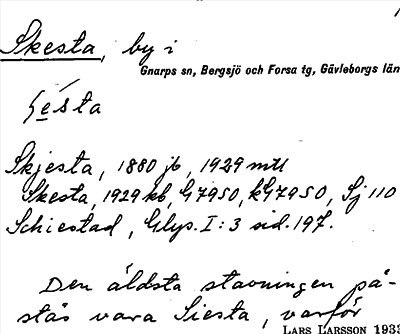 Skesta, by i
Gnarps sn, Bergsjö och Forsa tg, Gävleborgs län
Skjesta, 1880 jb, 1929 mtl
Skesta, 1929 kb, G7950, kG7950, Sj 110
Schiestad, Glys. I:3 sid. 197.
Den äldsta stavningen på-
stås vara Siesta, varför
LARS LARSSON 1935